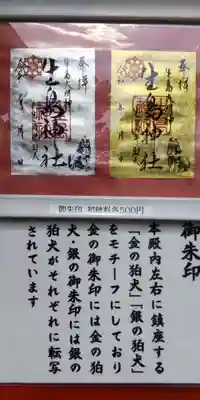 奉拝
生島神社
奉拝
生島神社
御朱印 初穂料各500円
御朱印
本殿内左右に鎮座する
「金の狛犬」「銀の狛犬」
をモチーフにしており
金の御朱印には金の狛
犬・銀の御朱印には銀の
狛犬がそれぞれに転写
されています